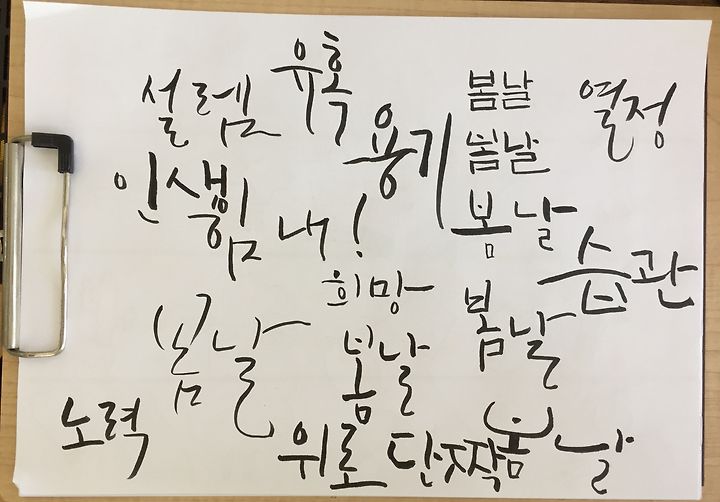 유혹
설렘
봄날
열정
용기
봄날
인생
힘내!
봄날
습관
희망
봄날
봄날
봄날
노력
위로
단짝
봄날